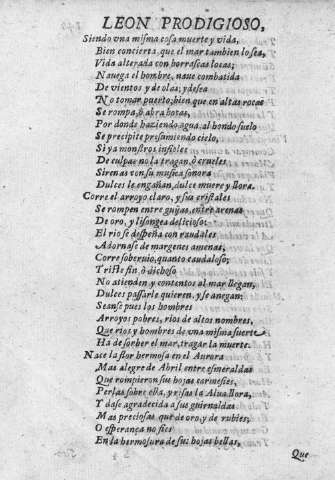 LEON PRODIGIOSO,
Siendo vna misma cosa muerte y vida,
Bien concierta, que el mar tambien lo sea,
Vida alterada con borrascas locas;
Nauega el hombre, naue combatida
De vientos y de olas; y desea
No tomar puerto; bien que en altas rocas
Se rompa, ò abra bocas,
Por donde haziendo agua, al hondo suelo
Se precipite presumiendo cielo,
Si ya monstros infieles
De culpas no la tragan, ò crueles
Sirenas con su musica sonora
Dulces le engañan, dulce muere y llora.
Corre el arroyo claro, y sus cristales
Se rompen entre guijas, entre arenas
De oro, y lisongea delicioso:
El rio se despeña con raudales
Adornase de margenes amenas,
Corre soberuio, quanto caudaloso;
Triste fin, ò dichoso
No atienden y contentos al mar llegan,
Dulces passarle quieren, y se anegan:
Seanse pues los hombres
Arroyos pobres, rios de altos nombres,
Que rios y hombres de vna misma suerte
Ha de sorber el mar, tragar la muerte.
Nace la flor hermosa en el Aurora
Mas alegre de Abril entre esmeraldas
Que rompieron sus hojas carmesies,
Perlas sobre ella, y risas la Alua llora,
Y dase agradecida a sus guirnaldas
Mas preciosas que de oro, y de rubies,
O esperança no fies
En la hermosura de sus hojas bellas,
Que